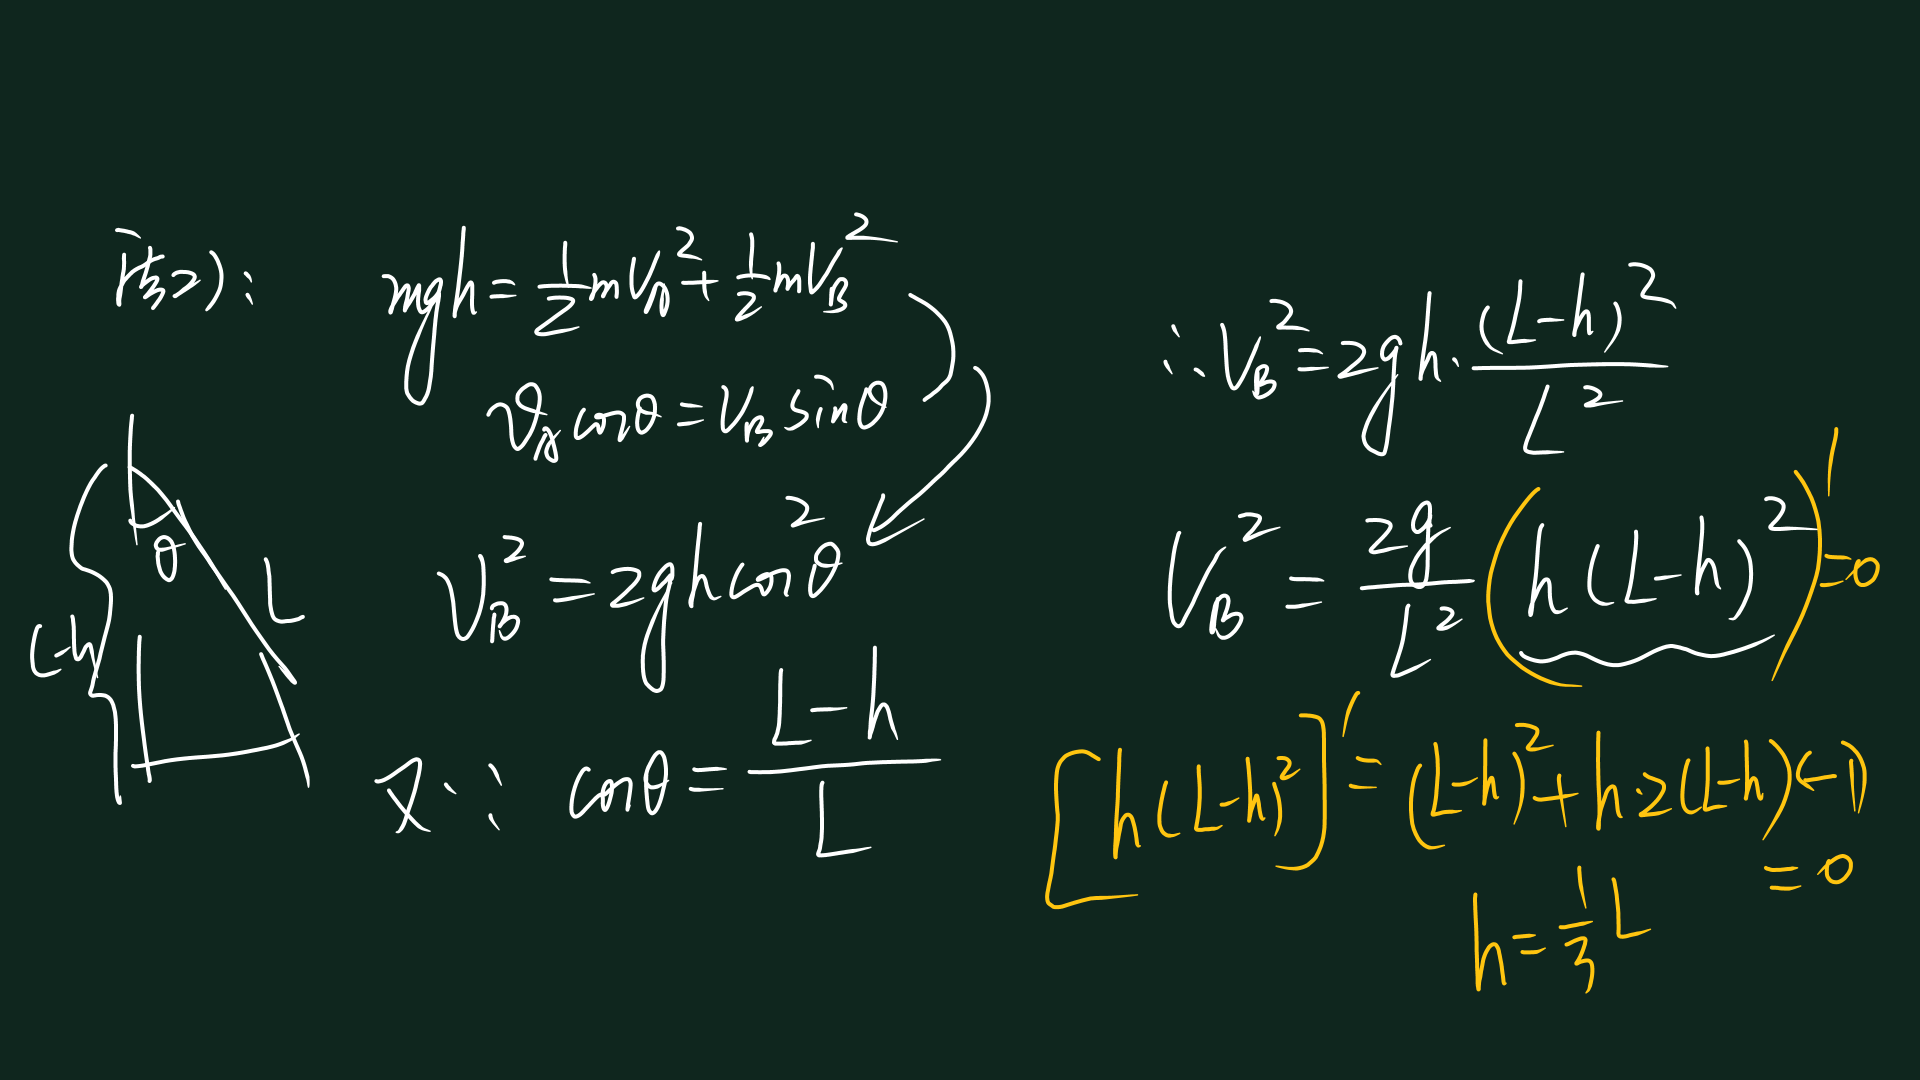 法2):
mgh = \frac{1}{2}mV_A^2 + \frac{1}{2}mV_B^2
v_A cosθ = V_B sinθ
V_B^2 = 2gh cos^2θ
又∵ cosθ = \frac{L-h}{L}
θ
L
L-h
∴ V_B^2 = 2gh · \frac{(L-h)^2}{L^2}
V_B^2 = \frac{2g}{L^2} (h(L-h)^2)' = 0
[h(L-h)^2]' = (L-h)^2 + h·2(L-h)(-1)
= 0
h = \frac{1}{3}L